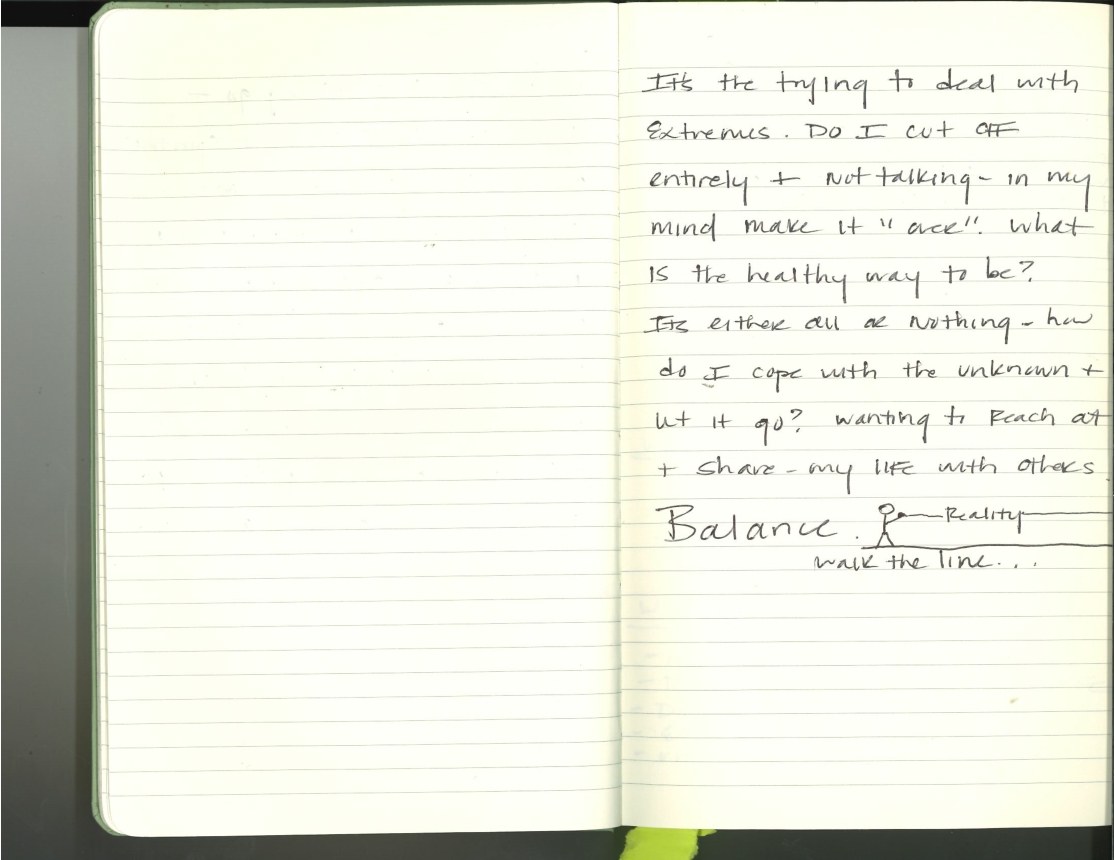 It's the trying to deal with
Extremes. Do I cut off
entirely + Not talking - in my
mind make it "over". What
is the healthy way to be?
Its either all or Nothing - how
do I cope with the unknown +
let it go? wanting to Reach out
+ share - my life with others.
Balance. Reality
walk the line...